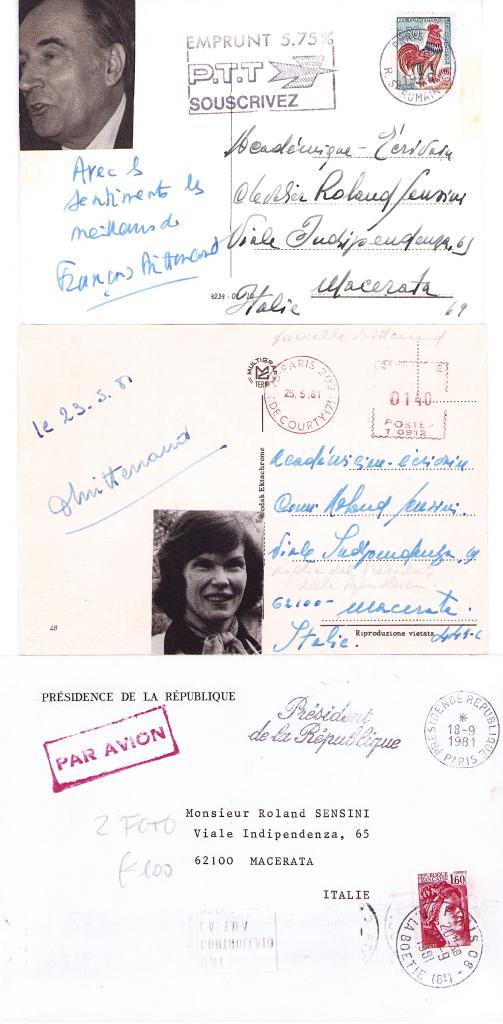 EMPRUNT 5.75%
P.T.T
SOUSCRIVEZ
Avec les
sentiments les
meilleurs de
François Mitterrand
Académique - Écrivain
Roland Sensini
Viale Indipendenza, 65
Macerata
Italie
69
le 23.5.81
Mitterrand
MULTIGRAF
TERNI
PARIS 202
25.5.81
0140
POSTES
T 0912
Kodak Ektachrome
Académicien-écrivain
Roland Sensini
Viale Indipendenza,
62100- Macerata.
Italie.
48
Riproduzione vietata
PRÉSIDENCE DE LA RÉPUBLIQUE
PAR AVION
Président
de la République
PRÉSIDENCE RÉPUBLIQUE
*
18-9
1981
PARIS
2 FOTO
€100
Monsieur Roland SENSINI
Viale Indipendenza, 65
62100 MACERATA
ITALIE
RÉPUBLIQUE
FRANÇAISE
1,60
PARIS 08
1981
LA BOETIE (8E)